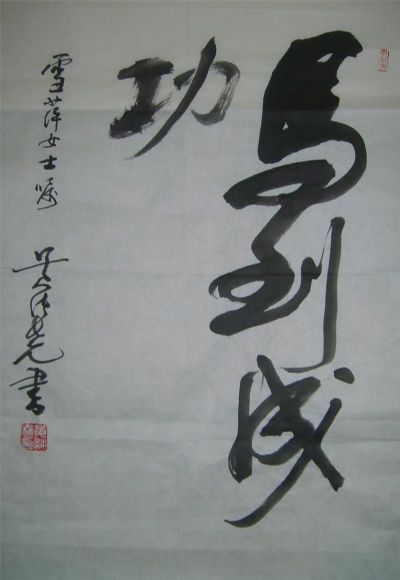 馬到成
功
雪萍女士嘱
書